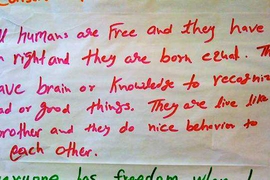 humans are free and they have
right and they are born equal.
have brain or knowledge to recogni
or good things. They are live like
brother and they do nice behavior to
each other.
has freedom